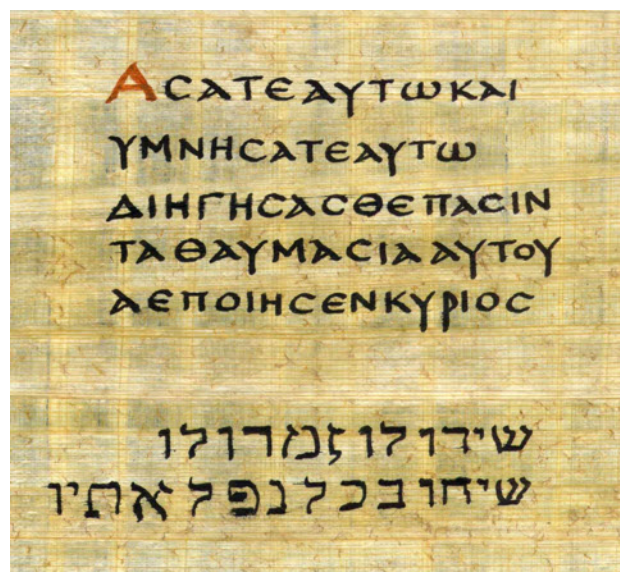 ΑϹΑΤΕΑΥΤΩΚΑΙ
ΥΜΝΗϹΑΤΕΑΥΤΩ
ΔΙΗΓΗϹΑϹΘΕΠΑϹΙΝ
ΤΑΘΑΥΜΑϹΙΑΑΥΤΟΥ
ΑΕΠΟΙΗϹΕΝΚΥΡΙΟϹ
שירו לו זמרו לו
שיחו בכל נפלאתיו